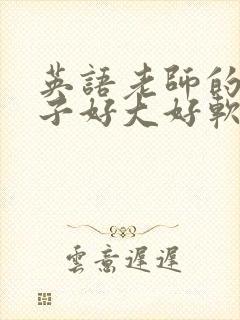 英語老師的
子好大好軟
雲意遲遲